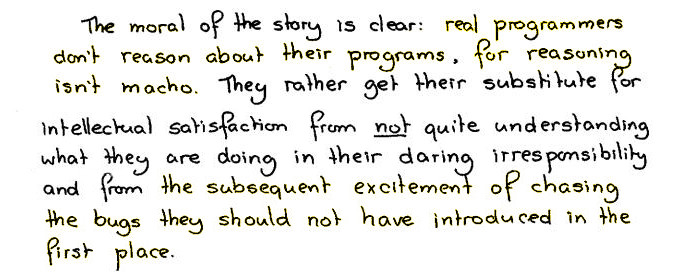 The moral of the story is clear: real programmers
don't reason about their programs, for reasoning
isn't macho. They rather get their substitute for
intellectual satisfaction from not quite understanding
what they are doing in their daring irresponsibility
and from the subsequent excitement of chasing
the bugs they should not have introduced in the
first place.